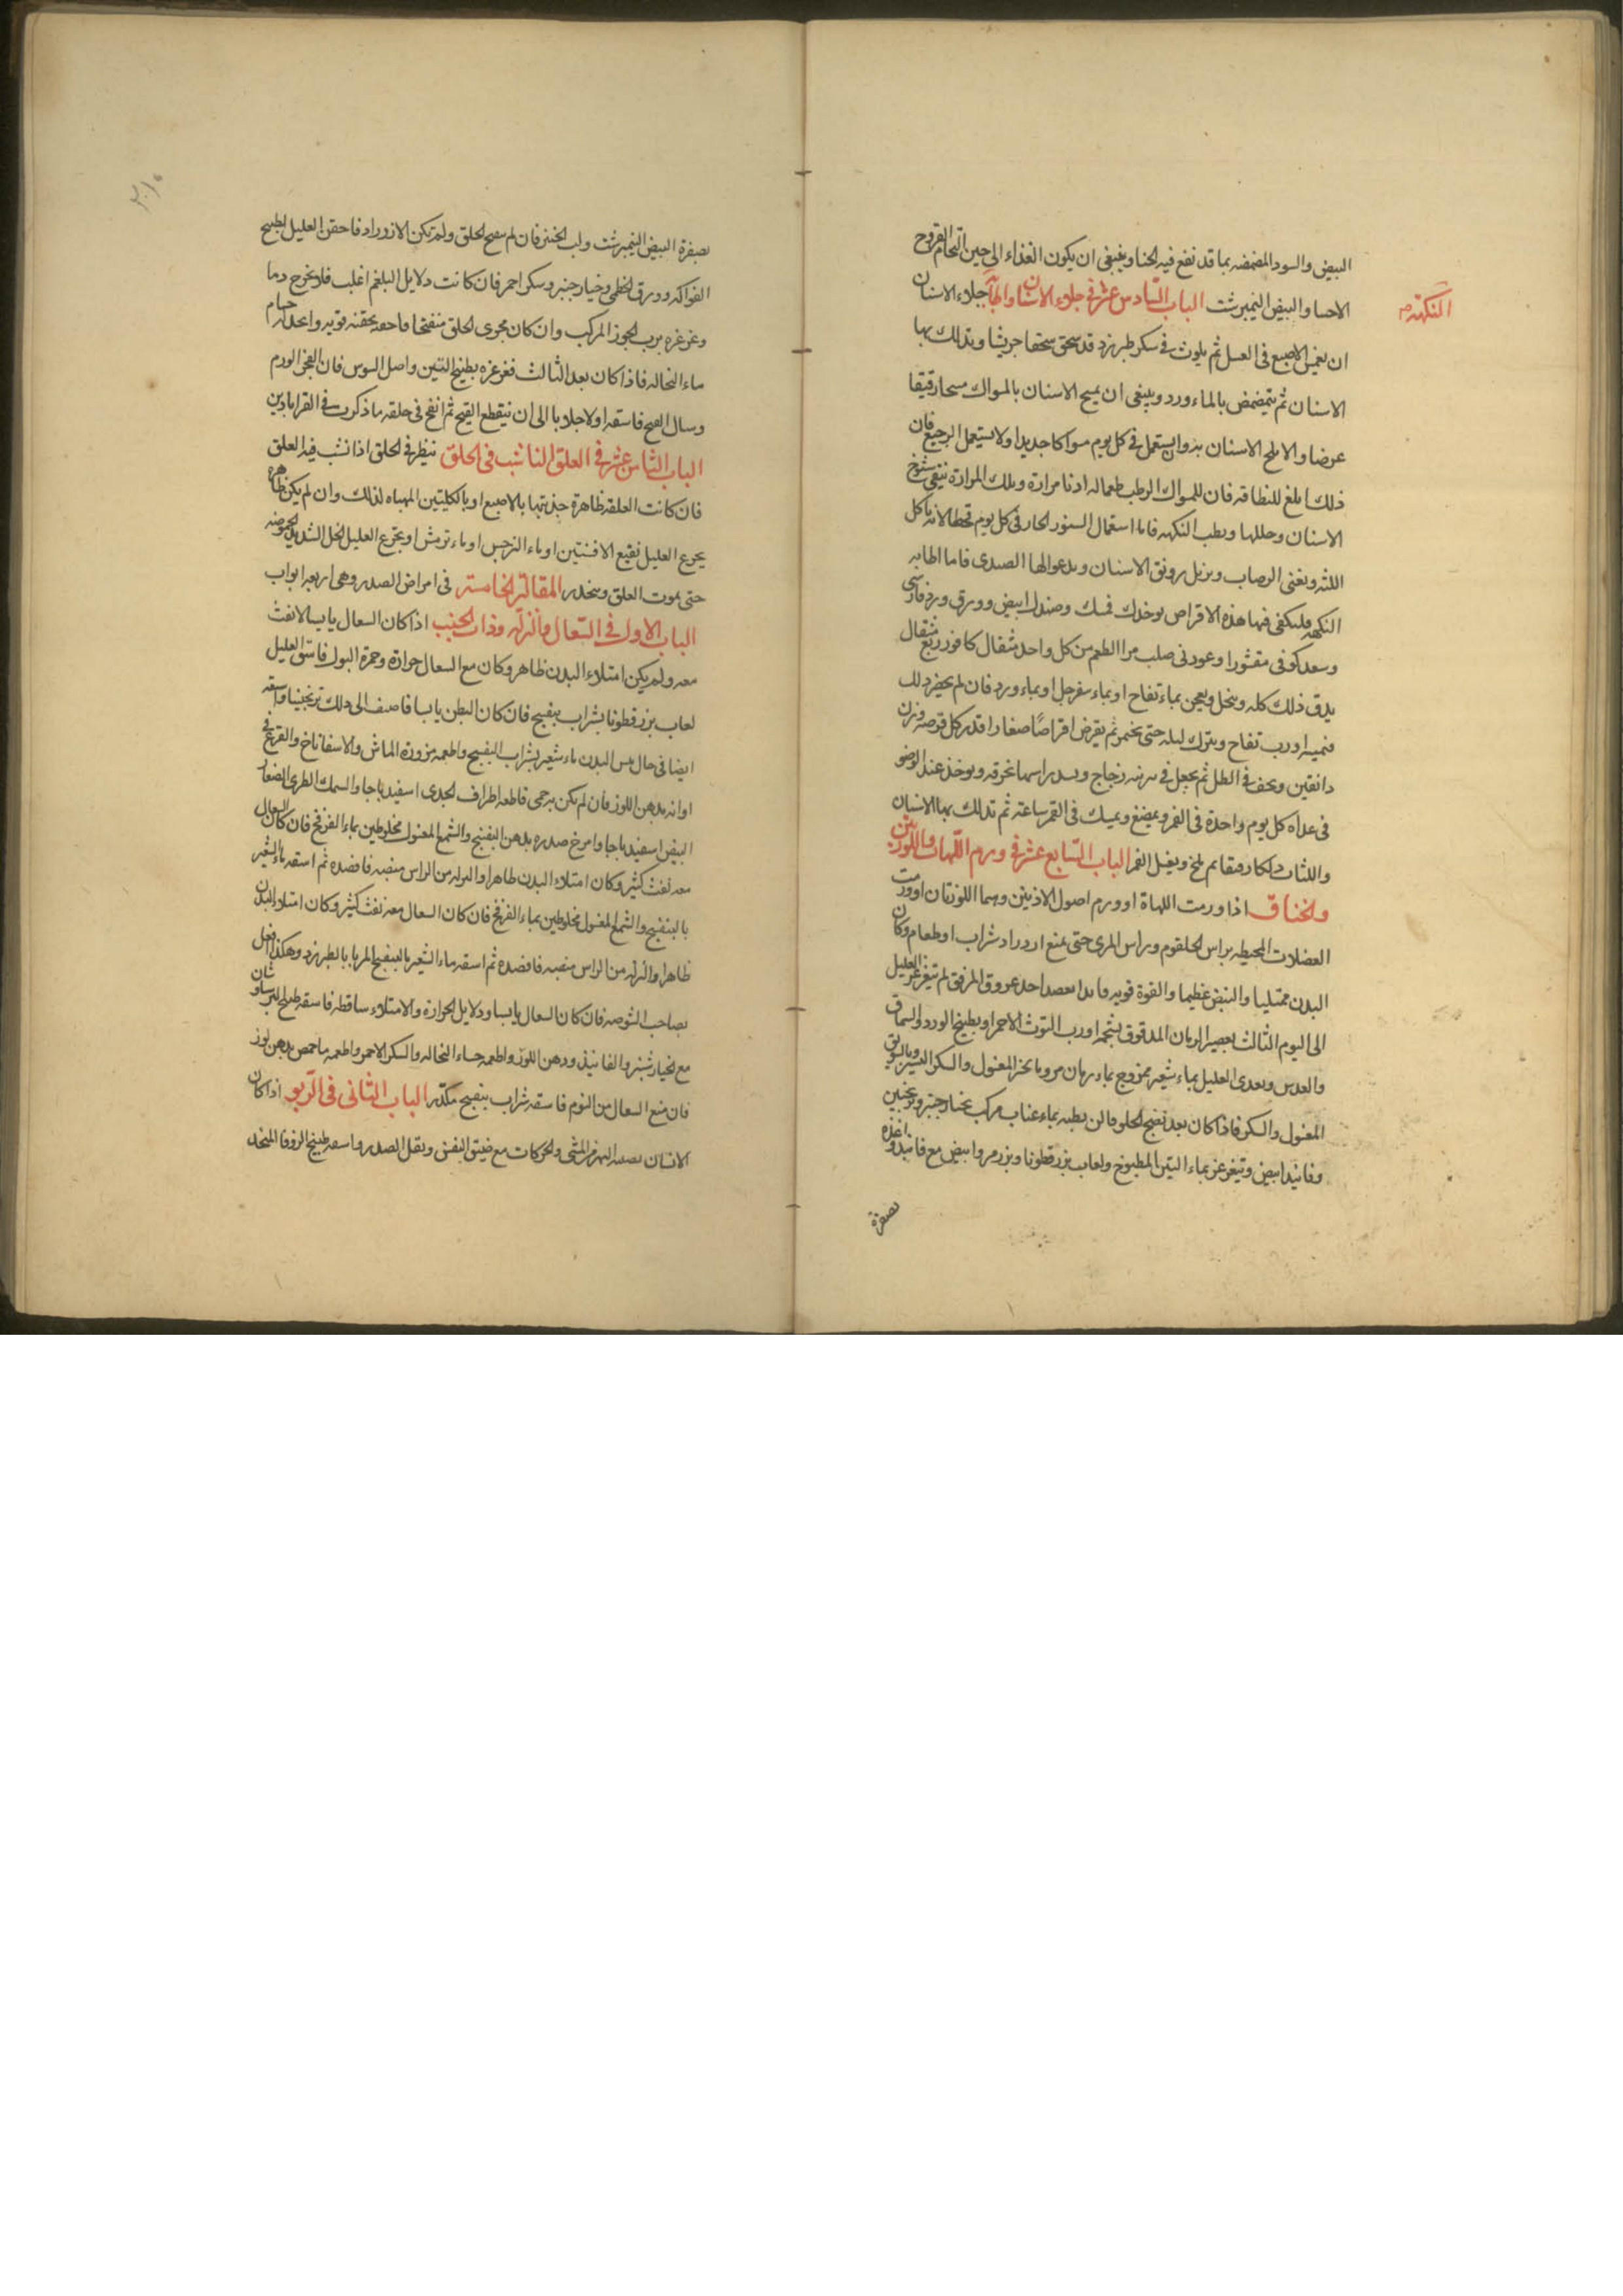 البيض والسود المضمضه بما قد نفع فيه الحنا وينبغى ان يكون الغذاء الى حين التحام القروح
النكهة صح
الاحسا والبيض النيمبرشت الباب السادس عشر فى جلاء الاسنان واطابة جلاء الاسنان
ان يغمس الاصبع فى العسل ثم يلوث فى سكر طبرزد قد سحق سحقا جريشا ويدلك بها
الاسنان ثم يتمضمض بالماء ورد وينبغى ان يمسح الاسنان بالمسواك مسحا رقيقا
عرضا والا بلح الاسنان به وان يستعمل فى كل يوم مسواكا جديدا ولا يستعمل الرجيع فان
ذلك ابلغ للنظافه فان للمسواك الرطب طعما له ادنا مرارة وبتلك المرارة ينقى
الاسنان ويطيب النكهه فاما استعمال السنون الحار فى كل يوم فخطا لانه ياكل
اللثه ويفنى ويزيل رونق الاسنان ويدعوا لها الصدى فاما اطابه
النكهه فليكفى فيها هذه الاقراص يوخذ سك وصندل ابيض وورق ورد فارسى
وسعد كوفى مقشورا وعود نى صلب مر الطعم من كل واحد مثقال كافور ربع مثقال
يدق ذلك كله وينخل ويعجن بماء تفاح او بماء سفرجل او بماء ورد فان لم يحضر ذلك
او رب تفاح ويترك ليله حتى يختمر ثم يقرص اقراصا صغارا قدر كل قرصه وزن
دانقين ويجفف فى الظل ثم يجعل فى برنيه زجاج ويسد راسها بخرقه ويوخذ عند الوضو
فى غداه كل يوم واحدة فى الفم ويمضغ ويمسك فى الفم ساعة ثم تدلك بها الاسنان
واللثات دلكا رفيقا ثم يمج ويغسل الفم الباب السابع عشر فى ورم اللهات واللوزتين
والخناق اذا ورمت اللهاة او ورم اصول الاذنين وهما اللوزتان او ورمت
العضلات المحيطه براس الحلقوم وراس المرى حتى يمنع ازدراد شراب او طعام وكان
البدن ممتليا والنبض عظيما والقوة قويه فابدا بفصد احد عروق المرفق ثم يتغرغر العليل
الى اليوم الثالث بعصير الرمان المدقوق بشحمه او رب التوث الاحمر او بطبيخ الورد والسماق
والعدس ويغدى العليل بماء شعير ممزوج بماء رمان مر وما بخبز المغسول والسكر اليسير وبالسويق
المغسول والسكر فاذا كان بعد نضج الحلق فالن بطنه بماء عناب مركب بخيار جنبر وترنجبين
وفانيد ابيض وتغرغر بماء التين المطبوخ ولعاب بزرقطونا وبزر مرو ابيض مع فانيد واغذه
بصفرة
بصفرة البيض النيمبرشت ولب الخبز فان لم ينفتح الحلق ولم يمكن الازدراد فاحقن العليل بطبيخ
الفواكه وورق الخطمى وخيار جنبر وسكر احمر فان كانت دلايل البلغم اغلب فلا يخرج دما
وغرغره برب الجوز المركب وان كان مجرى الحلق منفتحا فاحقنه بحقنه قويه
ماء النخاله فاذا كان بعد الثالث فغرغره بطبيخ التين واصل السوس فان انفجر الورم
وسال القيح فاسقه اولا جلابا الى ان ينقطع القيح ثم انفخ فى حلقه ما ذكرت فى القراباذين
الباب الثامن عشر فى العلق الناشب فى الحلق ينظر فى الحلق اذا نشب فيه العلق
فان كانت العلقه ظاهرة جذبتها بالاصبع او بالكلبتين المهياه لذلك وان لم يكن ظاهرة
يجرع العليل نقيع الافسنتين او ماء النرجس او ماء ترمش او يجرع العليل الخل الشديد الحموضه
حتى يموت العلق وينحدر المقالة الخامسة فى امراض الصدر وهى اربعة ابواب
الباب الاول فى السعال والنزلة وذات الجنب اذا كان السعال يابسا لا نفث
معه ولم يكن امتلاء البدن ظاهر وكان مع السعال حرارة وحمرة البول فاسق العليل
لعاب بزرقطونا بشراب بنفسج فان كان البطن يابسا فاضف الى ذلك ترنجبينا واسقه
ايضا فى حال يبس البدن ماء شعير بشراب البنفسج واطعمه مزورة الماش والاسفاناخ والقرع
بدهن اللوز فان لم يكن به حمى فاطعمه اطراف الجدى اسفيدباجا والسمك الطرى الصغار
البيض اسفيدباجا وامرخ صدره بدهن البنفسج والشمع المغسول مخلوطين بماء الفرفخ فان كان السعال
معه نفث كثير وكان امتلاء البدن ظاهرا والنزله من الراس منصبه فافصده ثم اسقه ماء الشعير
بالبنفسج والشمع المغسول مخلوطين بماء الفرفخ فان كان السعال معه نفث كثير وكان امتلا البدن
ظاهرا والنزله من الراس منصبه فافصده ثم اسقه ماء الشعير بالبنفسج المربا بالطبرزد وهكذا افعل
بصاحب الشوصه فان كان السعال يابسا ودلايل الحرارة والامتلاء ساقطه فاسقه طبيخ البرسياوشان
مع خيار شنبر والفانيذ ودهن اللوز واطعمه حساء النخاله والسكر الاحمر واطعمه ما حمص بدهن لوز
فان منع السعال من النوم فاسقه شراب بنفسج مكدر الباب الثانى فى الربو اذا كان
الانسان يصيبه البهر من المشى والحركات مع ضيق النفس وثقل الصدر واسقه طبيخ الزوفا المتخذ